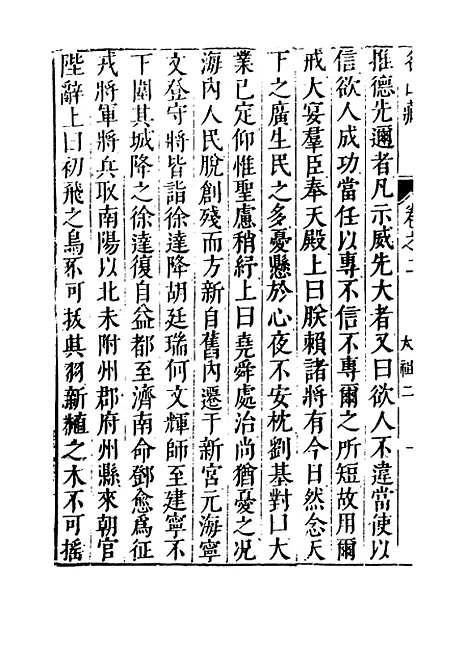 名山藏 卷之二 大祖二 一
推德先邇者凡示威先大者又曰欲人不違當使以
信欲人成功當任以專不信不專爾之所短故用爾
戒大宴羣臣奉天殿上曰朕賴諸將有今日然念天
下之廣生民之多憂懸於心夜不安枕劉基對曰大
業已定仰惟聖慮稍紓上曰堯舜處治尚猶憂之况
海內人民脫創殘而方新自舊內遷于新宮元海寧
文登守將皆詣徐達降胡廷瑞何文輝師至建寧不
下圍其城降之徐達復自益都至濟南命鄧愈爲征
戎將軍將兵取南陽以北未附州郡府州縣來朝官
陛辭上曰初飛之鳥不可拔其羽新植之木不可搖